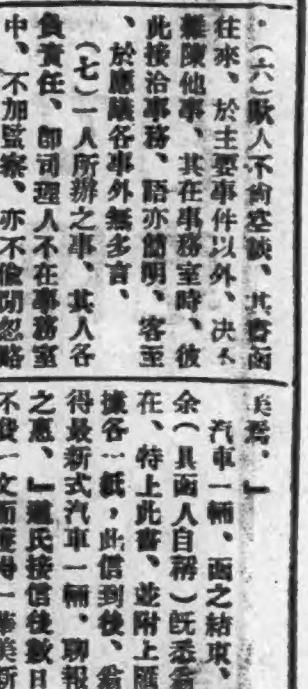 (六)歐人不尚空談、其書函
往來、於主要事件以外、决不
雜陳他事、其在事務室時、彼
此接洽事務、語亦簡明、客至
、於應議各事外無多言、
(七)一人所辦之事、其人各
負責任、卽司理人不在事務室
中、不加監察、亦不偷閒忽略
美焉、」
汽車一輛、函之結束、
余(具函人自稱)旣悉翁
在、特上此書、並附上匯
據各一紙、此信到後、翁
得最新式汽車一輛、聊報
之惠、」氏接信後數日
不費一文而獲得一華美新